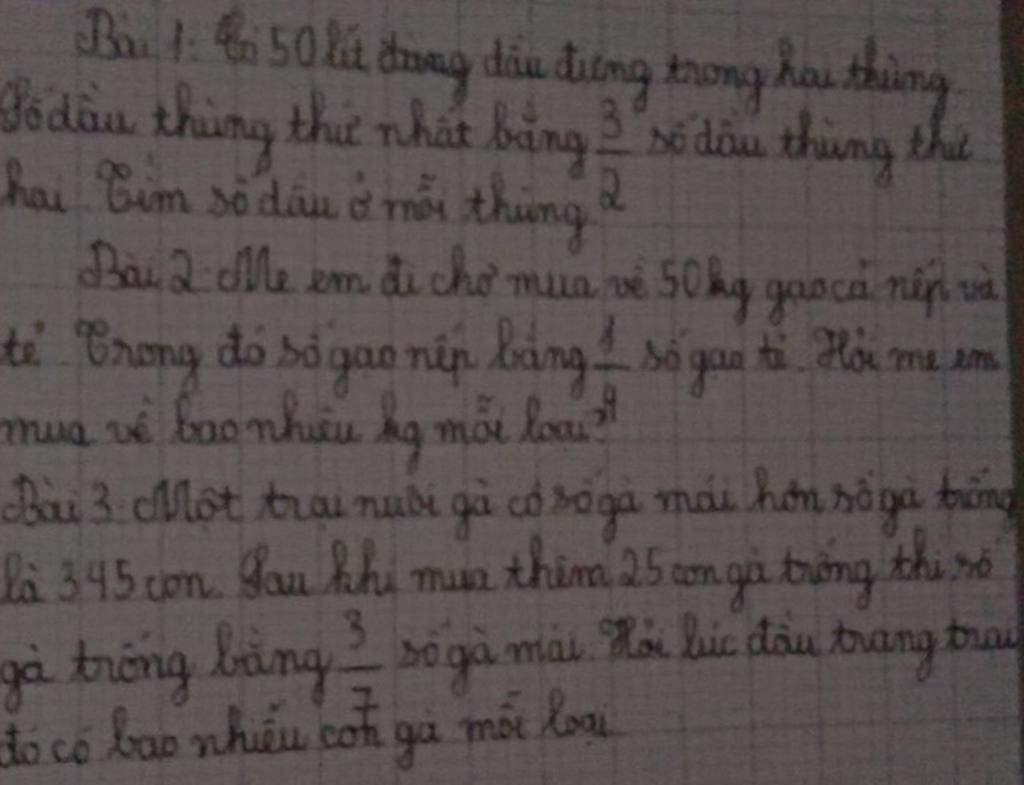 Bài 1: Có 50 lít đựng dầu đựng trong hai thùng.
Số dầu thùng thứ nhất bằng 3/2 số dầu thùng thứ
hai. Tìm số dầu ở mỗi thùng.
Bài 2: Mẹ em đi chợ mua về 50kg gạo cả nếp và
tẻ. Trong đó số gạo nếp bằng 1/4 số gạo tẻ. Hỏi mẹ em
mua về bao nhiêu kg mỗi loại?
Bài 3: Một trại nuôi gà có số gà mái hơn số gà trống
là 345 con. Sau khi mua thêm 25 con gà trống thì số
gà trống bằng 3/7 số gà mái. Hỏi lúc đầu trang trại
đó có bao nhiêu con gà mỗi loại